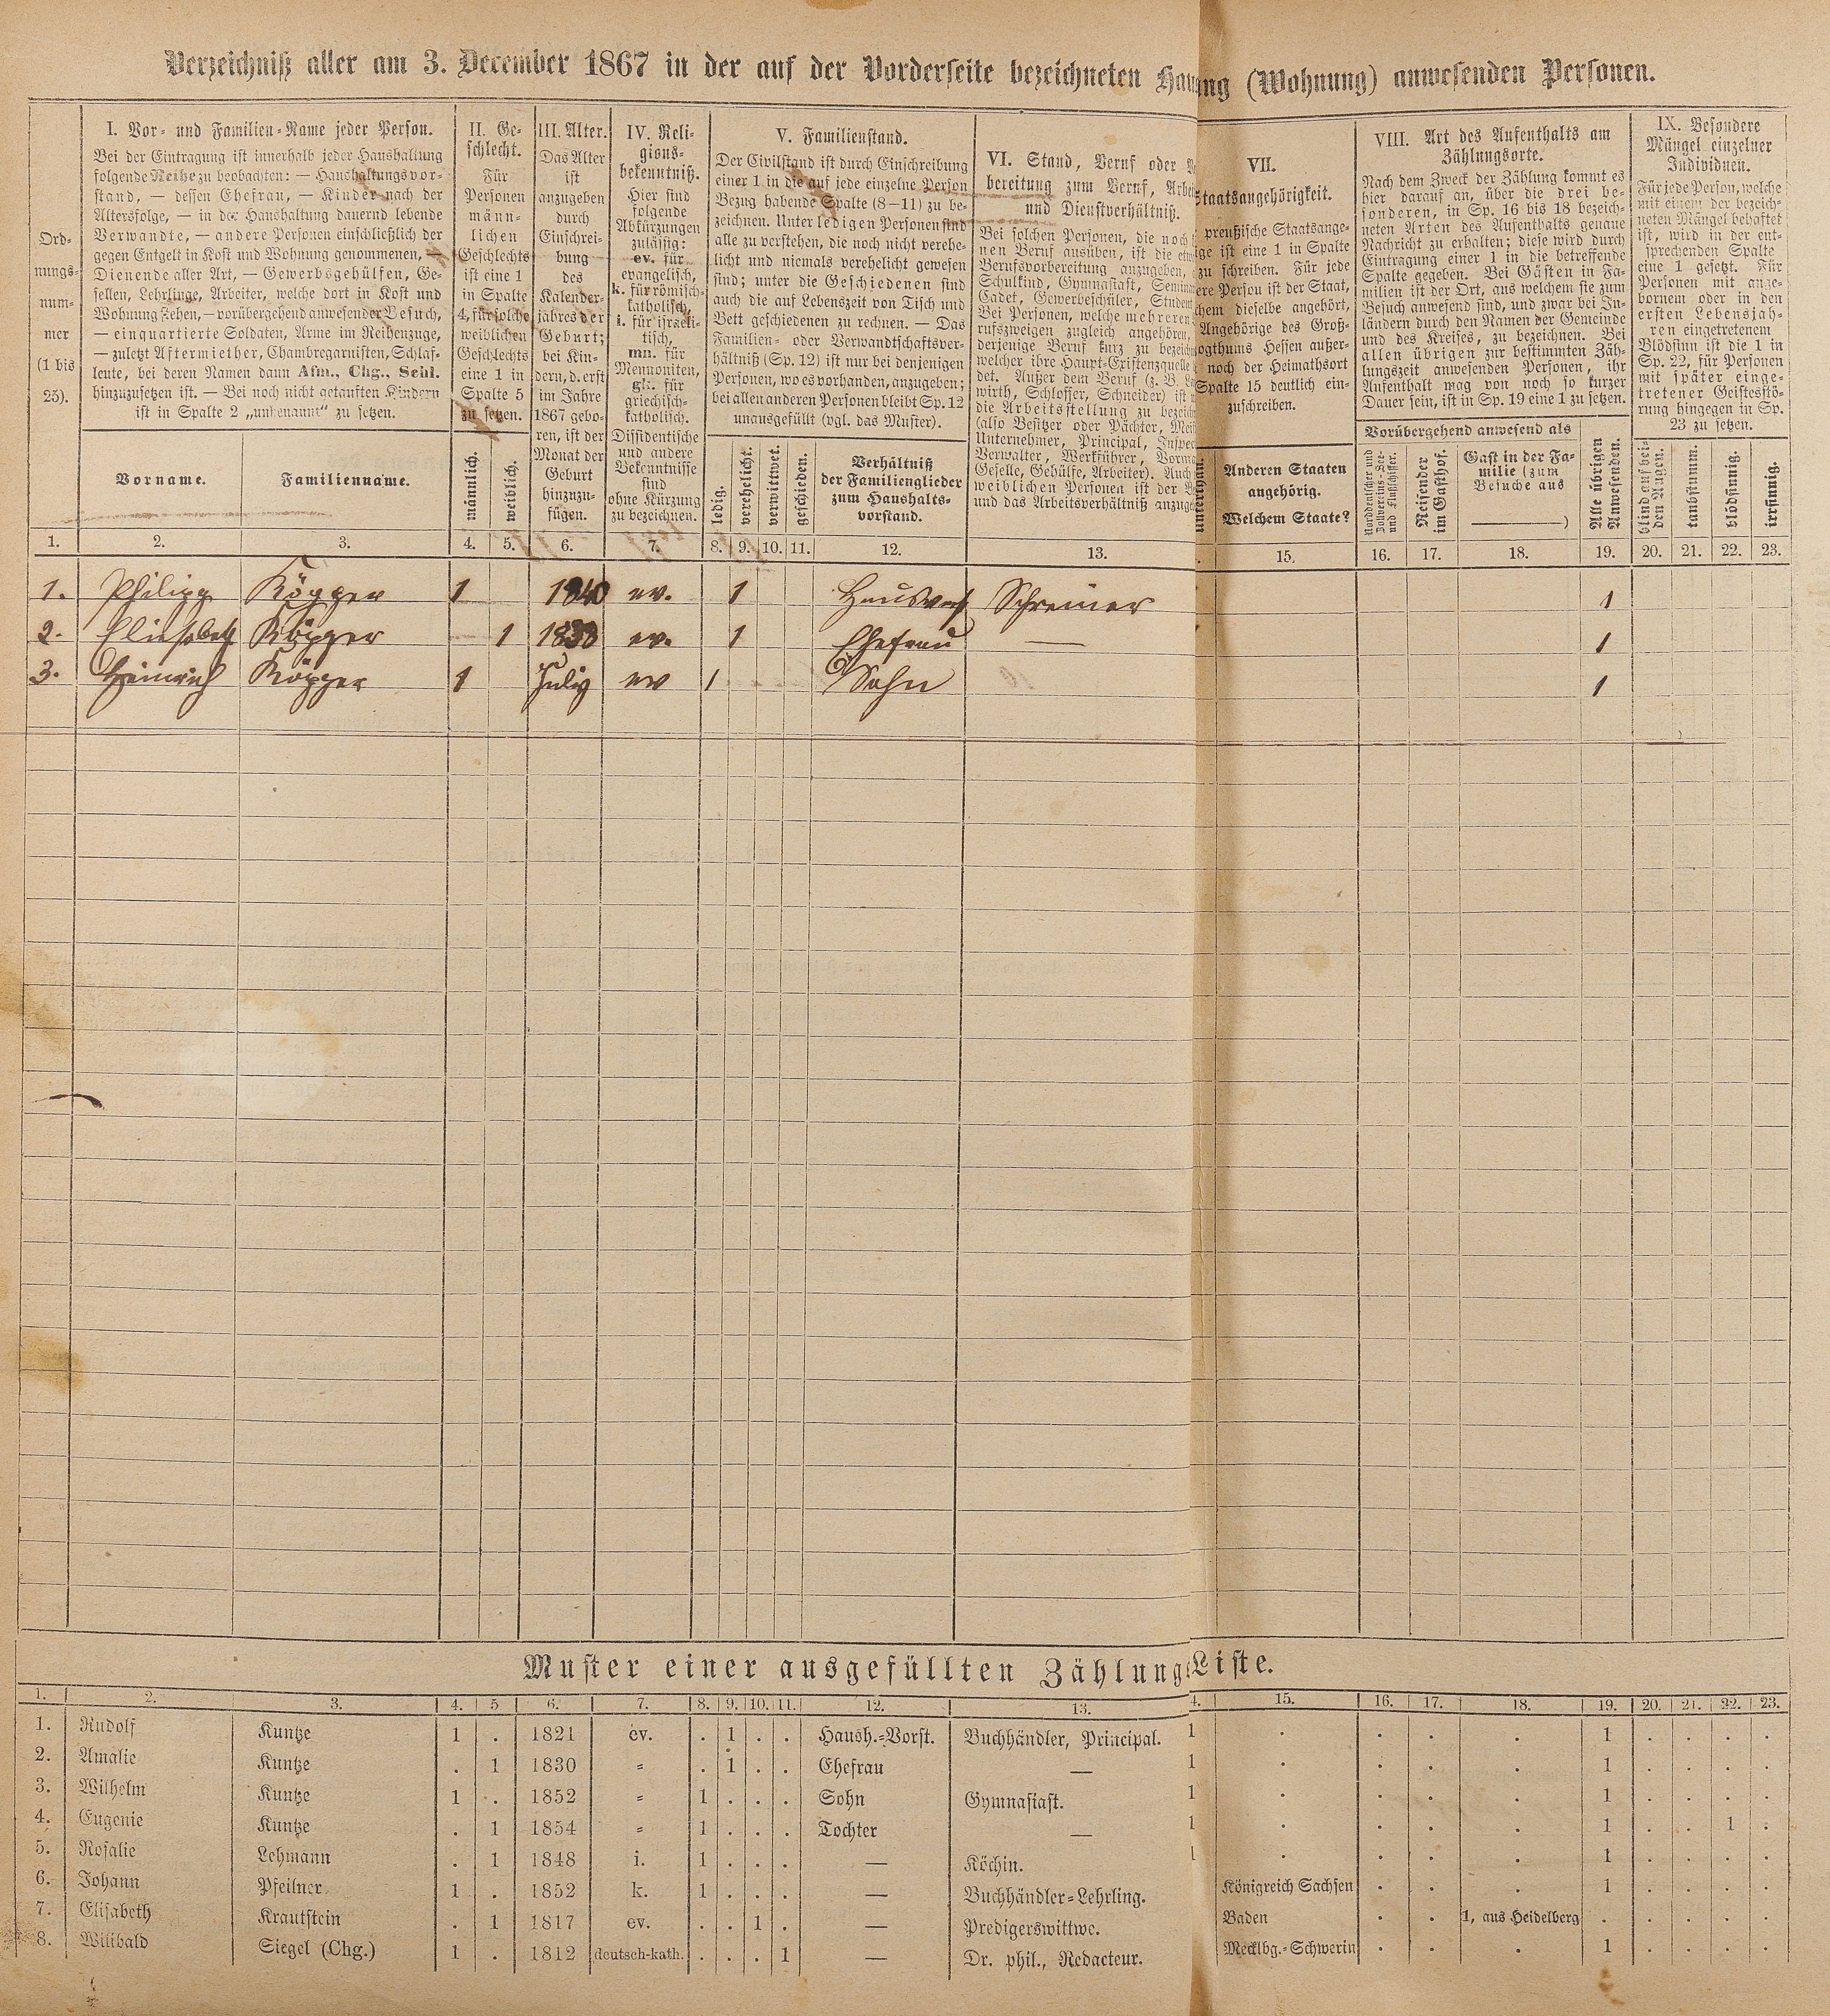 Verzeichniß aller am 3. December 1867 in der auf der Vorderseite bezeichneten Hau ng (Wohnung) anwesenden Personen.
Ord-
nungs-
num-
mer
(1 bis
25).
I. Vor- und Familien-Name jeder Person.
Bei der Eintragung ist innerhalb jeder Haushaltung
folgende Reihe zu beobachten: — Haushaltungsvor-
stand, — dessen Ehefrau, — Kinder nach der
Altersfolge, — in der Haushaltung dauernd lebende
Verwandte, — andere Personen einschließlich der
gegen Entgelt in Kost und Wohnung genommenen, —
Dienende aller Art, — Gewerbsgehülfen, Ge-
sellen, Lehrlinge, Arbeiter, welche dort in Kost und
Wohnung stehen, — vorübergehend anwesender Besuch,
— einquartierte Soldaten, Arme im Reihenzuge,
— zuletzt Aftermiether, Chambregarnisten, Schlaf-
leute, bei deren Namen dann Afm., Chg., Schl.
hinzuzusetzen ist. — Bei noch nicht getauften Kindern
ist in Spalte 2 „unbenannt“ zu setzen.
Vorname.
Familienname.
II. Ge-
schlecht.
Für
Personen
männ-
lichen
Geschlechts
ist eine 1
in Spalte
4, für solche
weiblichen
Geschlechts
eine 1 in
Spalte 5
zu setzen.
männlich.
weiblich.
III. Alter.
Das Alter
ist
anzugeben
durch
Einschrei-
bung
des
Kalender-
jahres der
Geburt;
bei Kin-
dern, d. erst
im Jahre
1867 gebo-
ren, ist der
Monat der
Geburt
hinzuzu-
fügen.
IV. Reli-
gions-
bekenntniß.
Hier sind
folgende
Abkürzungen
zulässig:
ev. für
evangelisch,
k. für römisch-
katholisch,
i. für israeli-
tisch,
mn. für
Mennoniten,
gk. für
griechisch-
katholisch.
Dissidentische
und andere
Bekenntnisse
sind
ohne Kürzung
zu bezeichnen.
V. Familienstand.
Der Civilstand ist durch Einschreibung
einer 1 in die auf jede einzelne Person
Bezug habende Spalte (8—11) zu be-
zeichnen. Unter ledigen Personen sind
alle zu verstehen, die noch nicht verehe-
licht und niemals verehelicht gewesen
sind; unter die Geschiedenen sind
auch die auf Lebenszeit von Tisch und
Bett geschiedenen zu rechnen. — Das
Familien- oder Verwandtschaftsver-
hältniß (Sp. 12) ist nur bei denjenigen
Personen, wo es vorhanden, anzugeben;
bei allen anderen Personen bleibt Sp. 12
unausgefüllt (vgl. das Muster).
ledig.
verehelicht.
verwittwet.
geschieden.
Verhältniß
der Familienglieder
zum Haushalts-
vorstand.
VI. Stand, Beruf oder
bereitung zum Beruf, Arbei
und Dienstverhältniß.
Bei solchen Personen, die noch
nen Beruf ausüben, ist die etw
Berufsvorbereitung anzugeben,
Schulkind, Gymnasiast, Semin
Cadet, Gewerbeschüler, Studen
Bei Personen, welche mehreren
rufszweigen zugleich angehören,
derjenige Beruf kurz zu bezeich
welcher ihre Haupt-Existenzquelle
det. Außer dem Beruf (z. B.
wirth, Schlosser, Schneider) ist
die Arbeitsstellung zu bezeich
(also Besitzer oder Pächter, Mei
Unternehmer, Principal, Inspec
Verwalter, Werkführer, Vorma
Geselle, Gehülfe, Arbeiter). Auch
weiblichen Personen ist der
und das Arbeitsverhältniß anzuge
VII.
Staatsangehörigkeit.
preußische Staatsange-
ge ist eine 1 in Spalte
zu schreiben. Für jede
ere Person ist der Staat,
chem dieselbe angehört,
Angehörige des Groß-
ogthums Hessen außer-
noch der Heimathsort
Spalte 15 deutlich ein-
zuschreiben.
unterthan.
Anderen Staaten
angehörig.
Welchem Staate?
VIII. Art des Aufenthalts am
Zählungsorte.
Nach dem Zweck der Zählung kommt es
hier darauf an, über die drei be-
sonderen, in Sp. 16 bis 18 bezeich-
neten Arten des Aufenthalts genaue
Nachricht zu erhalten; diese wird durch
Eintragung einer 1 in die betreffende
Spalte gegeben. Bei Gästen in Fa-
milien ist der Ort, aus welchem sie zum
Besuch anwesend sind, und zwar bei In-
ländern durch den Namen der Gemeinde
und des Kreises, zu bezeichnen. Bei
allen übrigen zur bestimmten Zäh-
lungszeit anwesenden Personen, ihr
Aufenthalt mag von noch so kurzer
Dauer sein, ist in Sp. 19 eine 1 zu setzen.
Vorübergehend anwesend als
Norddeutscher und
Zollvereins-See-
und Flußschiffer.
Reisender
im Gasthof.
Gast in der Fa-
milie (zum
Besuche aus
———)
Alle übrigen
Anwesenden.
IX. Besondere
Mängel einzelner
Individuen.
Für jede Person, welche
mit einem der bezeich-
neten Mängel behaftet
ist, wird in der ent-
sprechenden Spalte
eine 1 gesetzt. Für
Personen mit ange-
bornem oder in den
ersten Lebensjah-
ren eingetretenem
Blödsinn ist die 1 in
Sp. 22, für Personen
mit später einge-
tretener Geistesstö-
rung hingegen in Sp.
23 zu setzen.
blind auf bei-
den Augen.
taubstumm.
blödsinnig.
irrsinnig.
1. 2. 3. 4. 5. 6. 7. 8. 9. 10. 11. 12. 13. 15. 16. 17. 18. 19. 20. 21. 22. 23.
1. Philipp Köpper 1 1840 ev. 1 Hausvorst Schreiner 1
2. Eliesabeth Köpper — 1 1838 ev. 1 Ehefrau — 1
3. Heinrich Köpper 1 July ev 1 Sohn 1
Muster einer ausgefüllten Zählungs Liste.
1. 2. 3. 4. 5 6. 7. 8. 9. 10. 11. 12. 13. 4. 15. 16. 17. 18. 19. 20. 21. 22. 23.
1. Rudolf Kuntze 1 . 1821 ev. . 1 . . Haush.-Vorst. Buchhändler, Principal. 1 . . . . 1 . . . .
2. Amalie Kuntze . 1 1830 = . 1 . . Ehefrau — 1 . . . . 1 . . . .
3. Wilhelm Kuntze 1 . 1852 = 1 . . . Sohn Gymnasiast. 1 . . . . 1 . . . .
4. Eugenie Kuntze . 1 1854 = 1 . . . Tochter — 1 . . . . 1 . . 1 .
5. Rosalie Lehmann . 1 1848 i. 1 . . . — Köchin. 1 . . . . 1 . . . .
6. Johann Pfeilner 1 . 1852 k. 1 . . . — Buchhändler-Lehrling. Königreich Sachsen . . . 1 . . . .
7. Elisabeth Krautstein . 1 1817 ev. . . 1 . — Predigerswittwe. Baden . . 1, aus Heidelberg . . . . .
8. Wilibald Siegel (Chg.) 1 . 1812 deutsch-kath. . . . 1 — Dr. phil., Redacteur. Mecklbg.-Schwerin . . . 1 . . . .